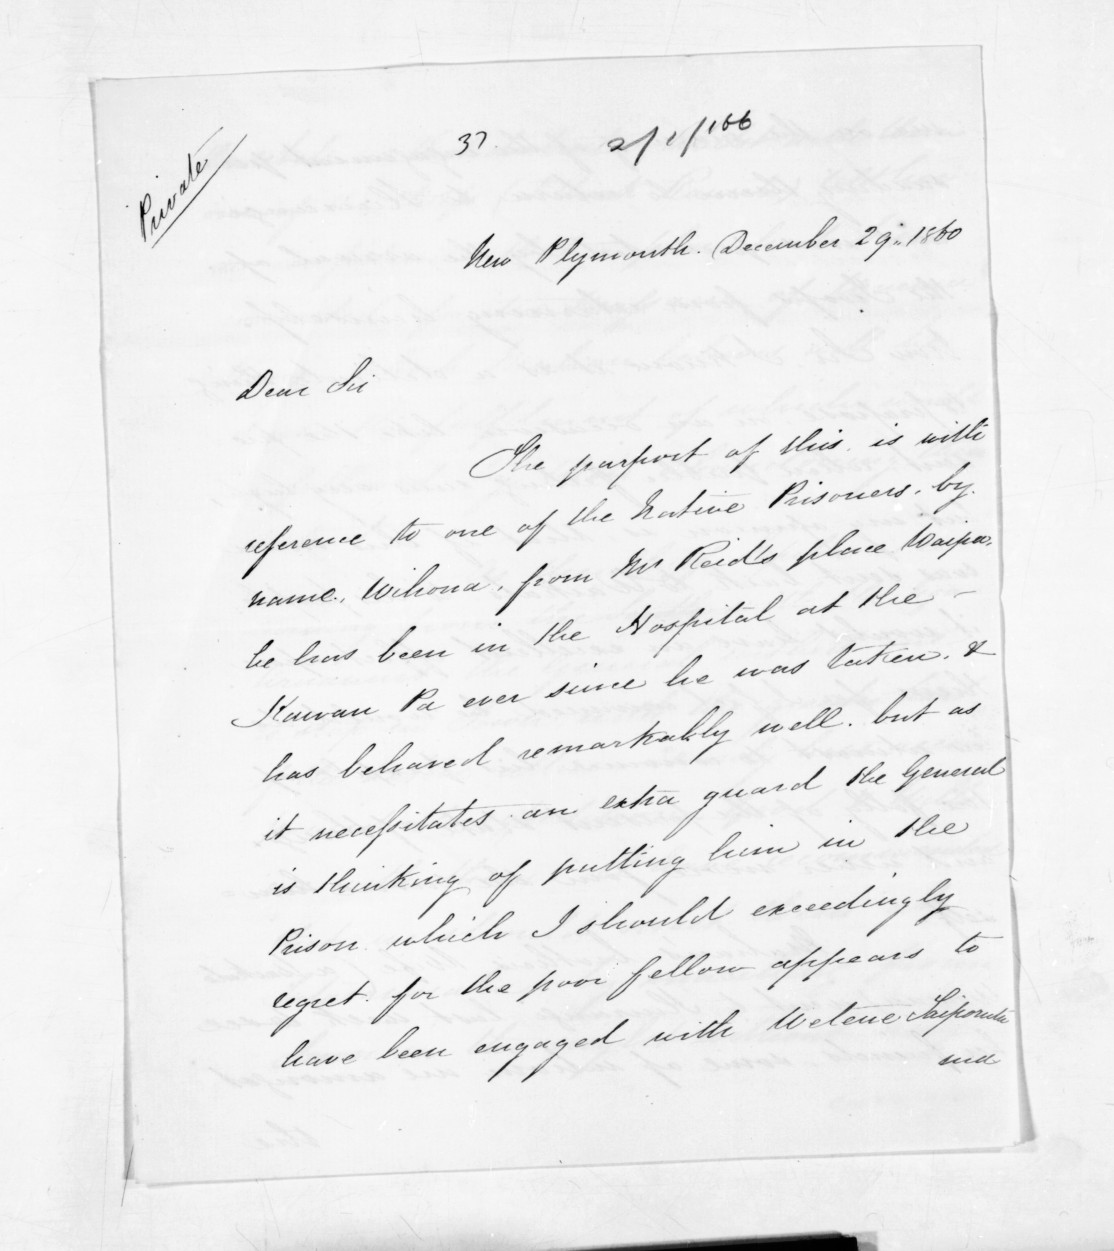 Private
37.
New Plymouth. December 29. 1860
Dear Sir
The purport of this. is with
reference to one of the Native Prisoners. by
name. Wihona, from Mr Reid's place Waipa.
he has been in the Hospital at the -
Kawau Pa ever since he was taken. &
has behaved remarkably well. but as
it necessitates an extra guard the General
is thinking of putting him in the
Prison which I should exceedingly
regret. for the poor fellow appears to
have been engaged with Wetene Taiporutu